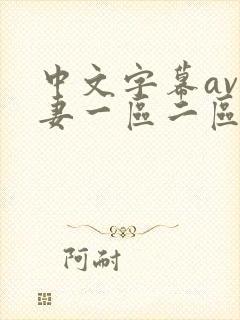 中文字幕av
妻一區二區
阿耐